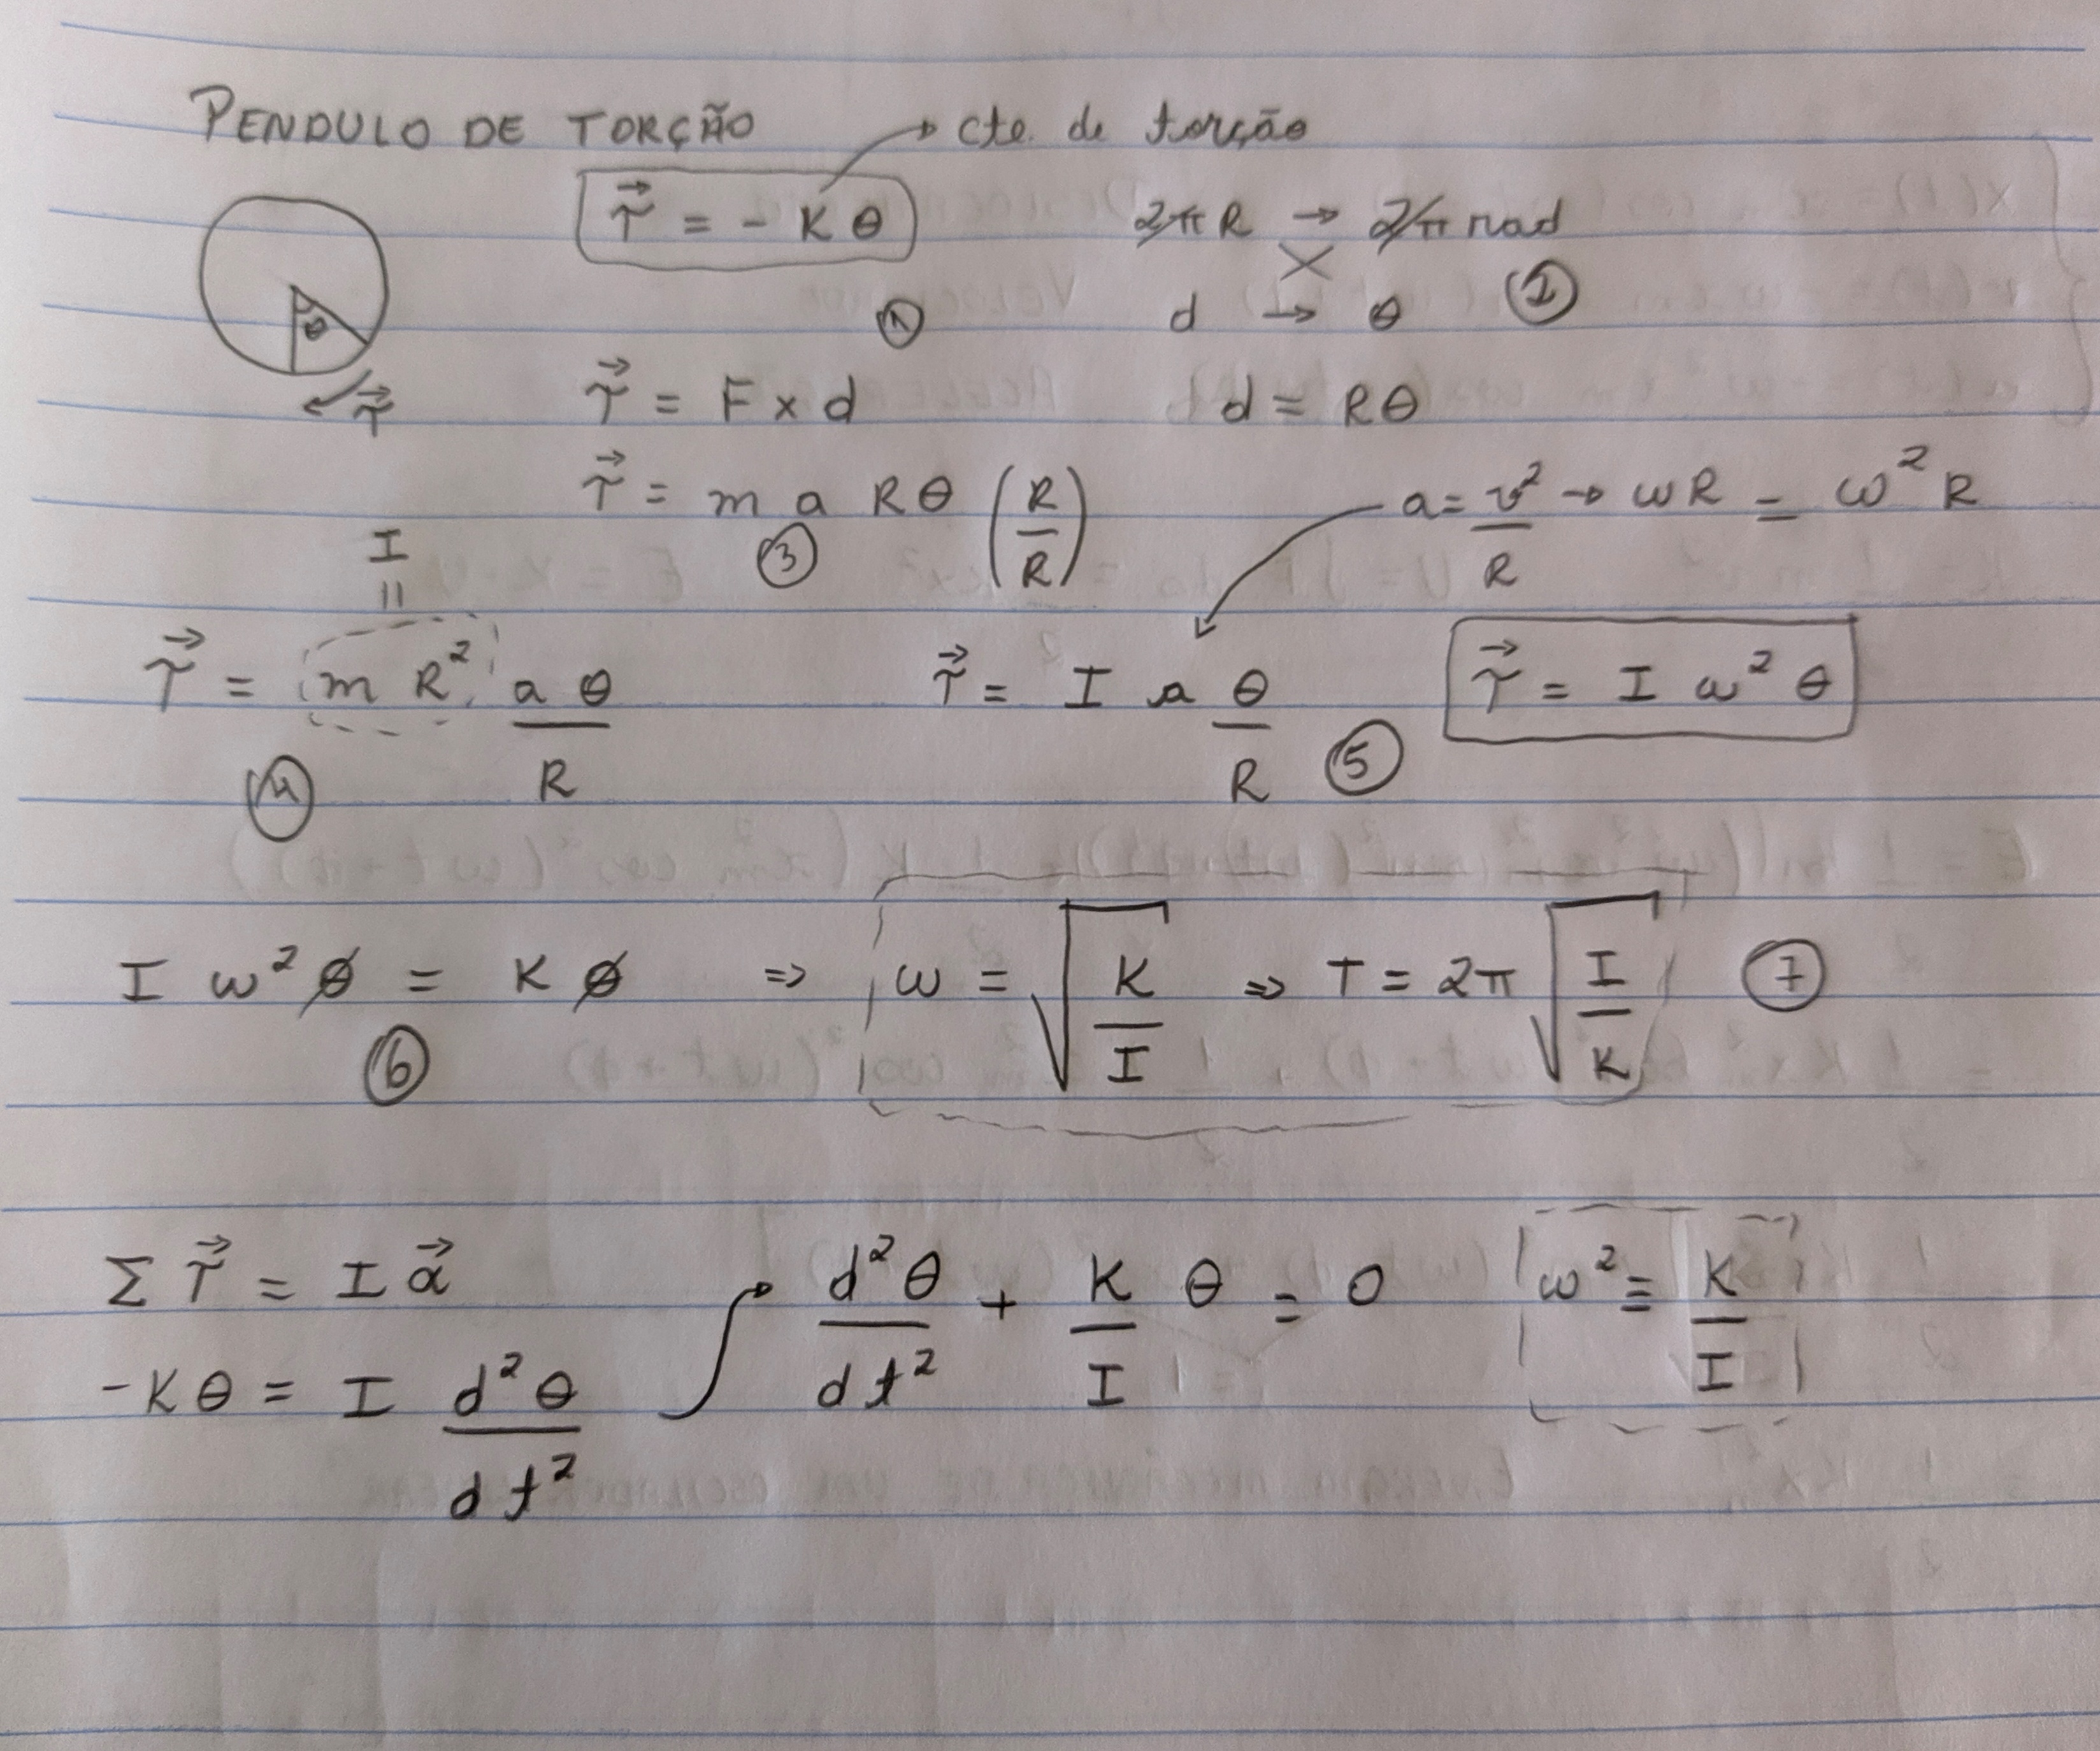 PENDULO DE TORÇÃO → cte. de torção
τ⃗ = - K θ
2πR → 2π rad
d → θ
①
②
θ
τ⃗
τ⃗ = F x d
d = Rθ
τ⃗ = m a Rθ (R/R)
③
a = v²/R → ωR = ω²R
I
=
τ⃗ = m R² aθ/R
④
τ⃗ = I a θ/R
⑤
τ⃗ = I ω² θ
I ω² θ = K θ ⇒ ω = √(K/I) ⇒ T = 2π √(I/K) ⑦
⑥
Σ τ⃗ = I α⃗
-Kθ = I d²θ/dt²
→ d²θ/dt² + K/I θ = 0
ω² = K/I